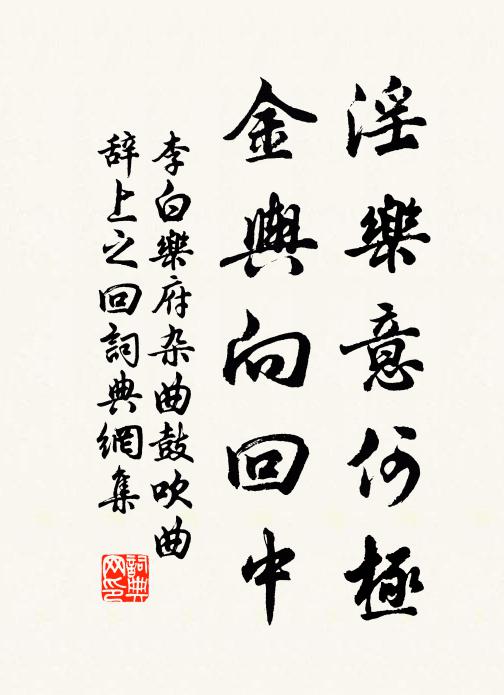 淫樂意何極
金輿向回中
李白樂府杂曲鼓吹曲
辞上之回詞典網集
詞典
网印